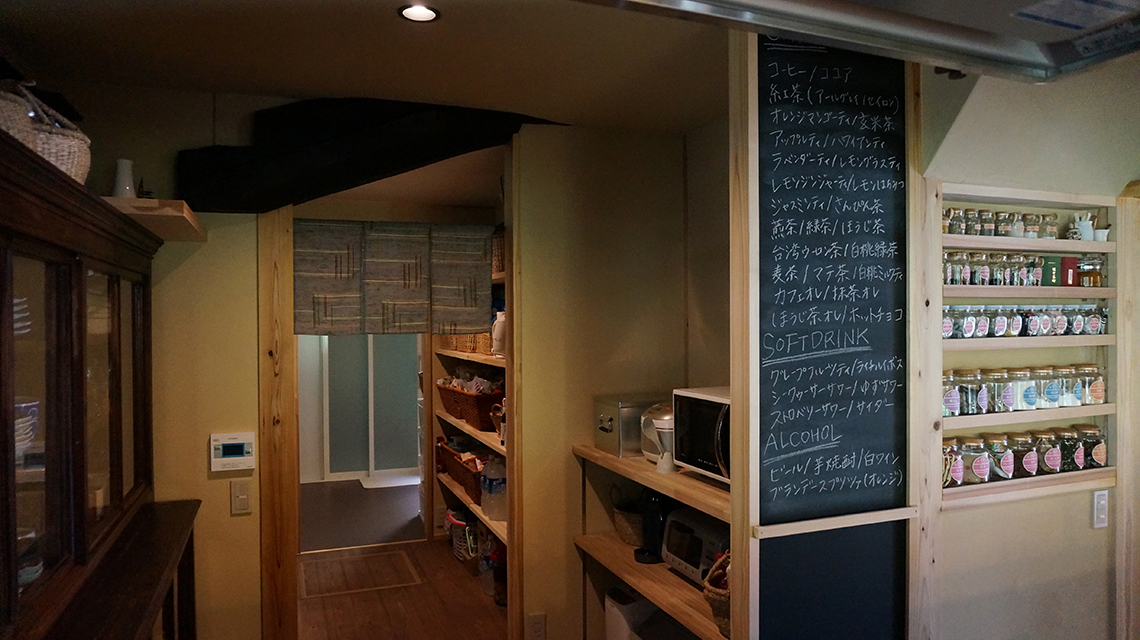 コーヒー/ココア
紅茶(アールグレイ/セイロン)
オレンジマンゴーティ/玄米茶
アップルティ/ハワイアンティ
ラベンダーティ/レモングラスティ
レモンジンジャーティ/レモンはちみつ
ジャスミンティ/さんぴん茶
煎茶/緑茶/ほうじ茶
台湾ウーロン茶/白桃緑茶
麦茶/マテ茶/白桃ミルクティ
カフェオレ/抹茶オレ
ほうじ茶オレ/ホットチョコ
SOFTDRINK
グレープフルーツティ/ライチルイボス
シークヮーサーサワー/ゆずサワー
ストロベリーサワー/サイダー
ALCOHOL
ビール/芋焼酎/白ワイン
ブランデースプリッツァ(オレンジ)